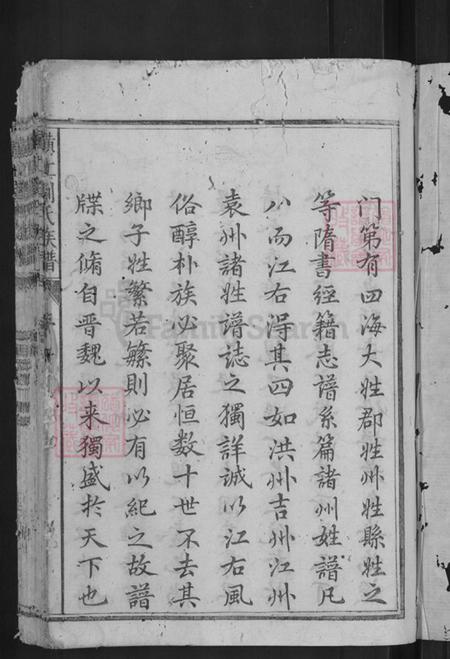 門第有四海大姓郡姓州姓縣姓之
等隋書經籍志譜系篇諸州姓譜凡
八而江右得其四如洪州吉州江州
袁州諸姓譜誌之獨詳誠以江右風
俗醇朴族必聚居恒数十世不去其
鄉子姓繁若繁則必有以紀之故譜
牒之脩自晋魏以来獨盛於天下也
劉氏族譜
FamilySearch